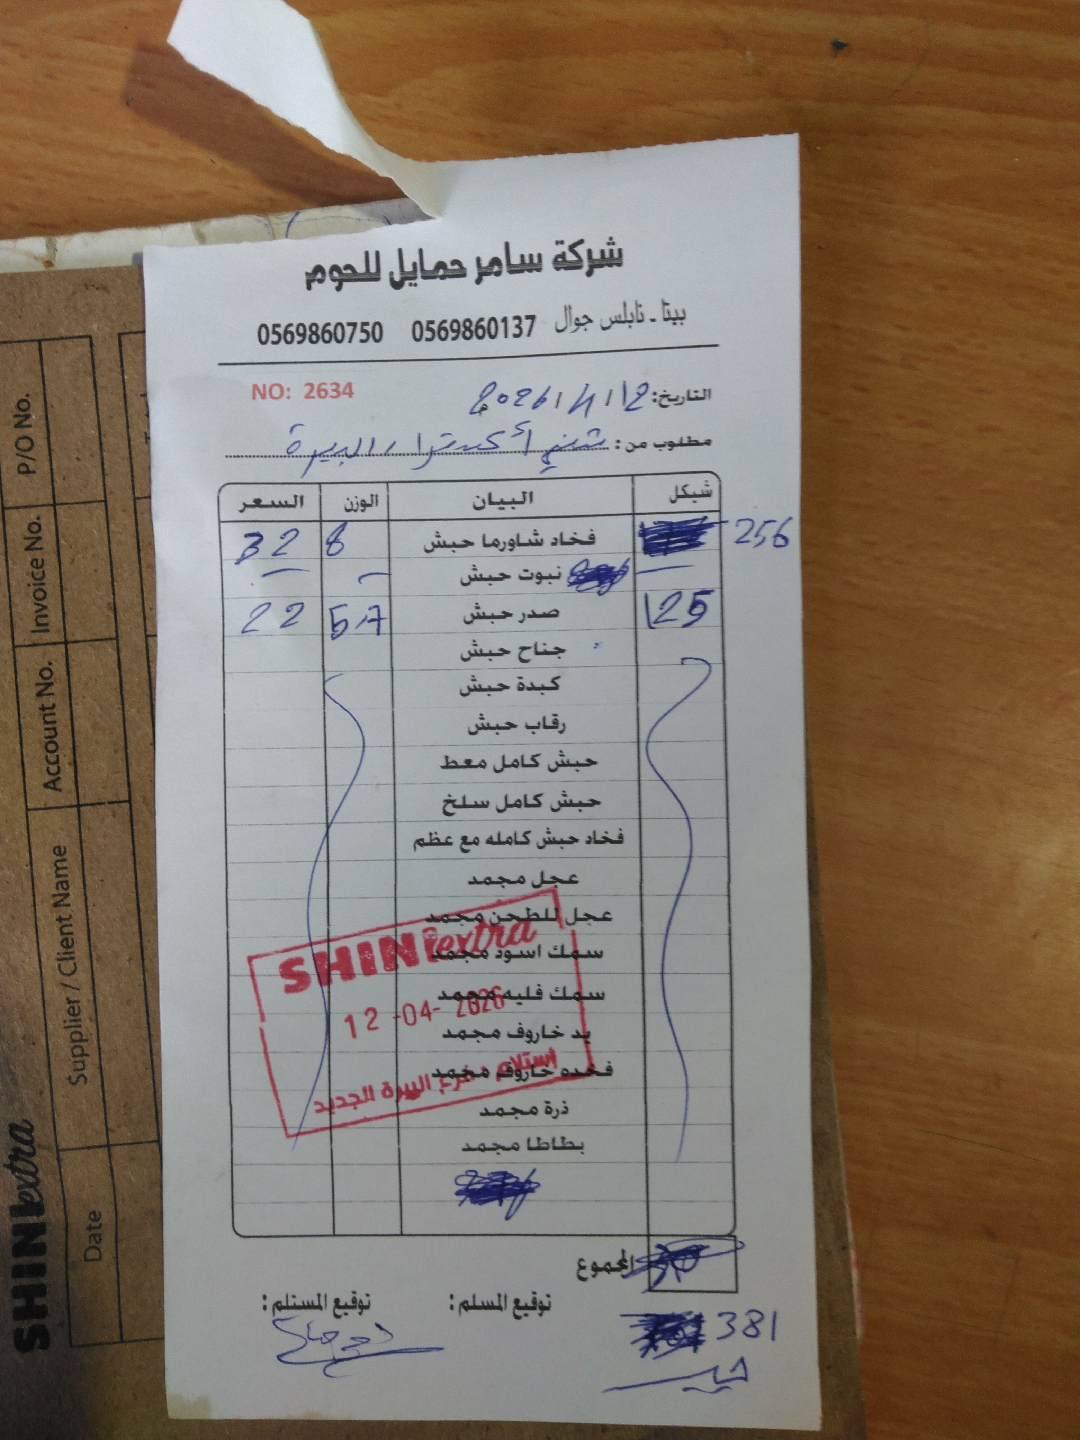 شركة سامر حمايل للحوم
بيتا - نابلس جوال 0569860137 0569860750
NO: 2634
التاريخ: 12/4/2026
مطلوب من: شني أكسترا / البيرة
شيكل البيان الوزن السعر
256 فخاد شاورما حبش 8 32
نبوت حبش
125 صدر حبش 5.7 22
جناح حبش
كبدة حبش
رقاب حبش
حبش كامل معط
حبش كامل سلخ
فخاد حبش كامله مع عظم
عجل مجمد
عجل للطحن مجمد
سمك اسود مجمد
سمك فليه مجمد
يد خاروف مجمد
فخده خاروف مجمد
ذرة مجمد
بطاطا مجمد
SHINI extra
12-04-2026
استلام فرع البيرة الجديد
المجموع
توقيع المسلم: توقيع المستلم:
381
SHINI extra
Date
Supplier / Client Name
Account No.
Invoice No.
P/O No.